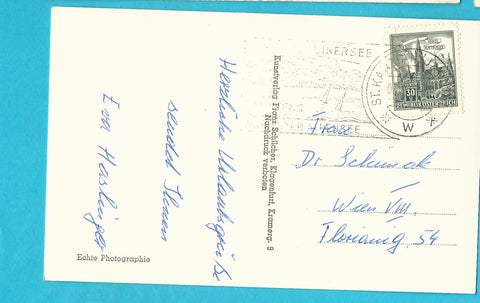 Herzliche Urlaubsgrüße
sendet Ihnen
Eva
Echte Photographie
Kunstverlag Franz Schilcher, Klagenfurt, Kramerg. 9
Nachdruck verboten
30
REPUBLIK ÖSTERREICH
W
Frau
Dr
Wien VIII.
Florianig. 54